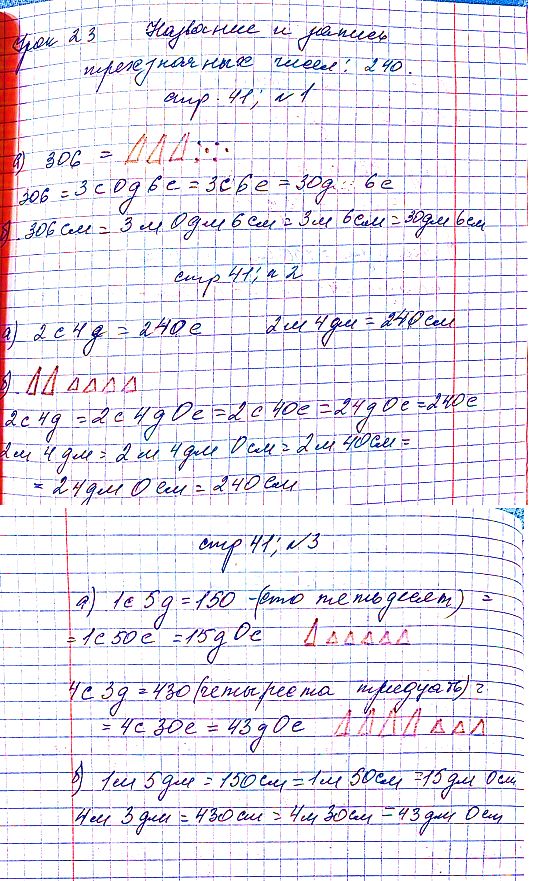 Урок 23 Название и запись
трехзначных чисел: 240.
стр. 41; №1
а) 306 =
306 = 3с 0д 6е = 3с 6е = 30д 6е
б) 306 см = 3 м 0 дм 6 см = 3 м 6 см = 30 дм 6 см
стр 41; №2
а) 2с 4д = 240е 2 м 4 дм = 240 см
б)
2с 4д = 2с 4д 0е = 2с 40е = 24д 0е = 240е
2 м 4 дм = 2 м 4 дм 0 см = 2 м 40 см =
= 24 дм 0 см = 240 см
стр 41; №3
а) 1с 5д = 150 - (сто петьдесят) =
= 1с 50е = 15д 0е
4с 3д = 430 (четыреста тридцать) =
= 4с 30е = 43д 0е
б) 1 м 5 дм = 150 см = 1 м 50 см = 15 дм 0 см
4 м 3 дм = 430 см = 4 м 30 см = 43 дм 0 см